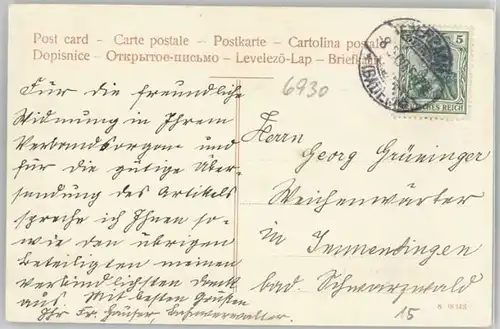 Post card - Carte postale - Postkarte - Cartolina postale
Dopisnice - Открытое-письмо - Levelező-Lap - Briefkaart
5
DEUTSCHES REICH
6930
Für die freundliche
Widmung in Ihrem
Verbandsorgane und
für die gütige Über-
sendung des Artikels
spreche ich Ihnen so-
wie den übrigen
Beteiligten meinen
verbindlichsten Dank
aus. Mit besten Grüßen
Ihr Fr. Häuser, Bahnverwalter.
Herrn
Georg Grüninger
Weichenwärter
in Immendingen
bad. Schwarzwald
15